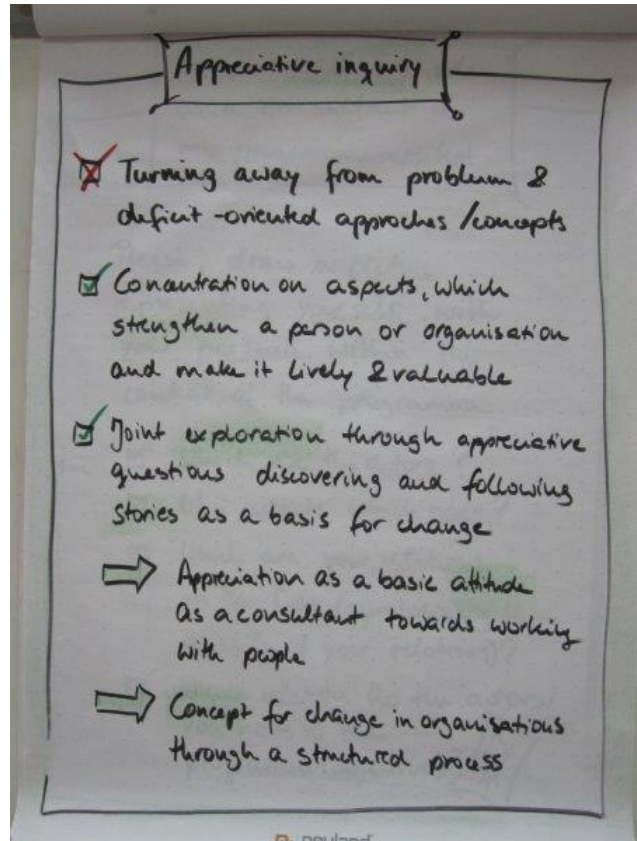 Appreciative inquiry
Turning away from problem &
deficit-oriented approches/concepts
Concentration on aspects, which
strengthen a person or organisation
and make it lively & valuable
Joint exploration through appreciative
questions discovering and following
stories as a basis for change
Appreciation as a basic attitude
as a consultant towards working
with people
Concept for change in organisations
through a structured process
neuland